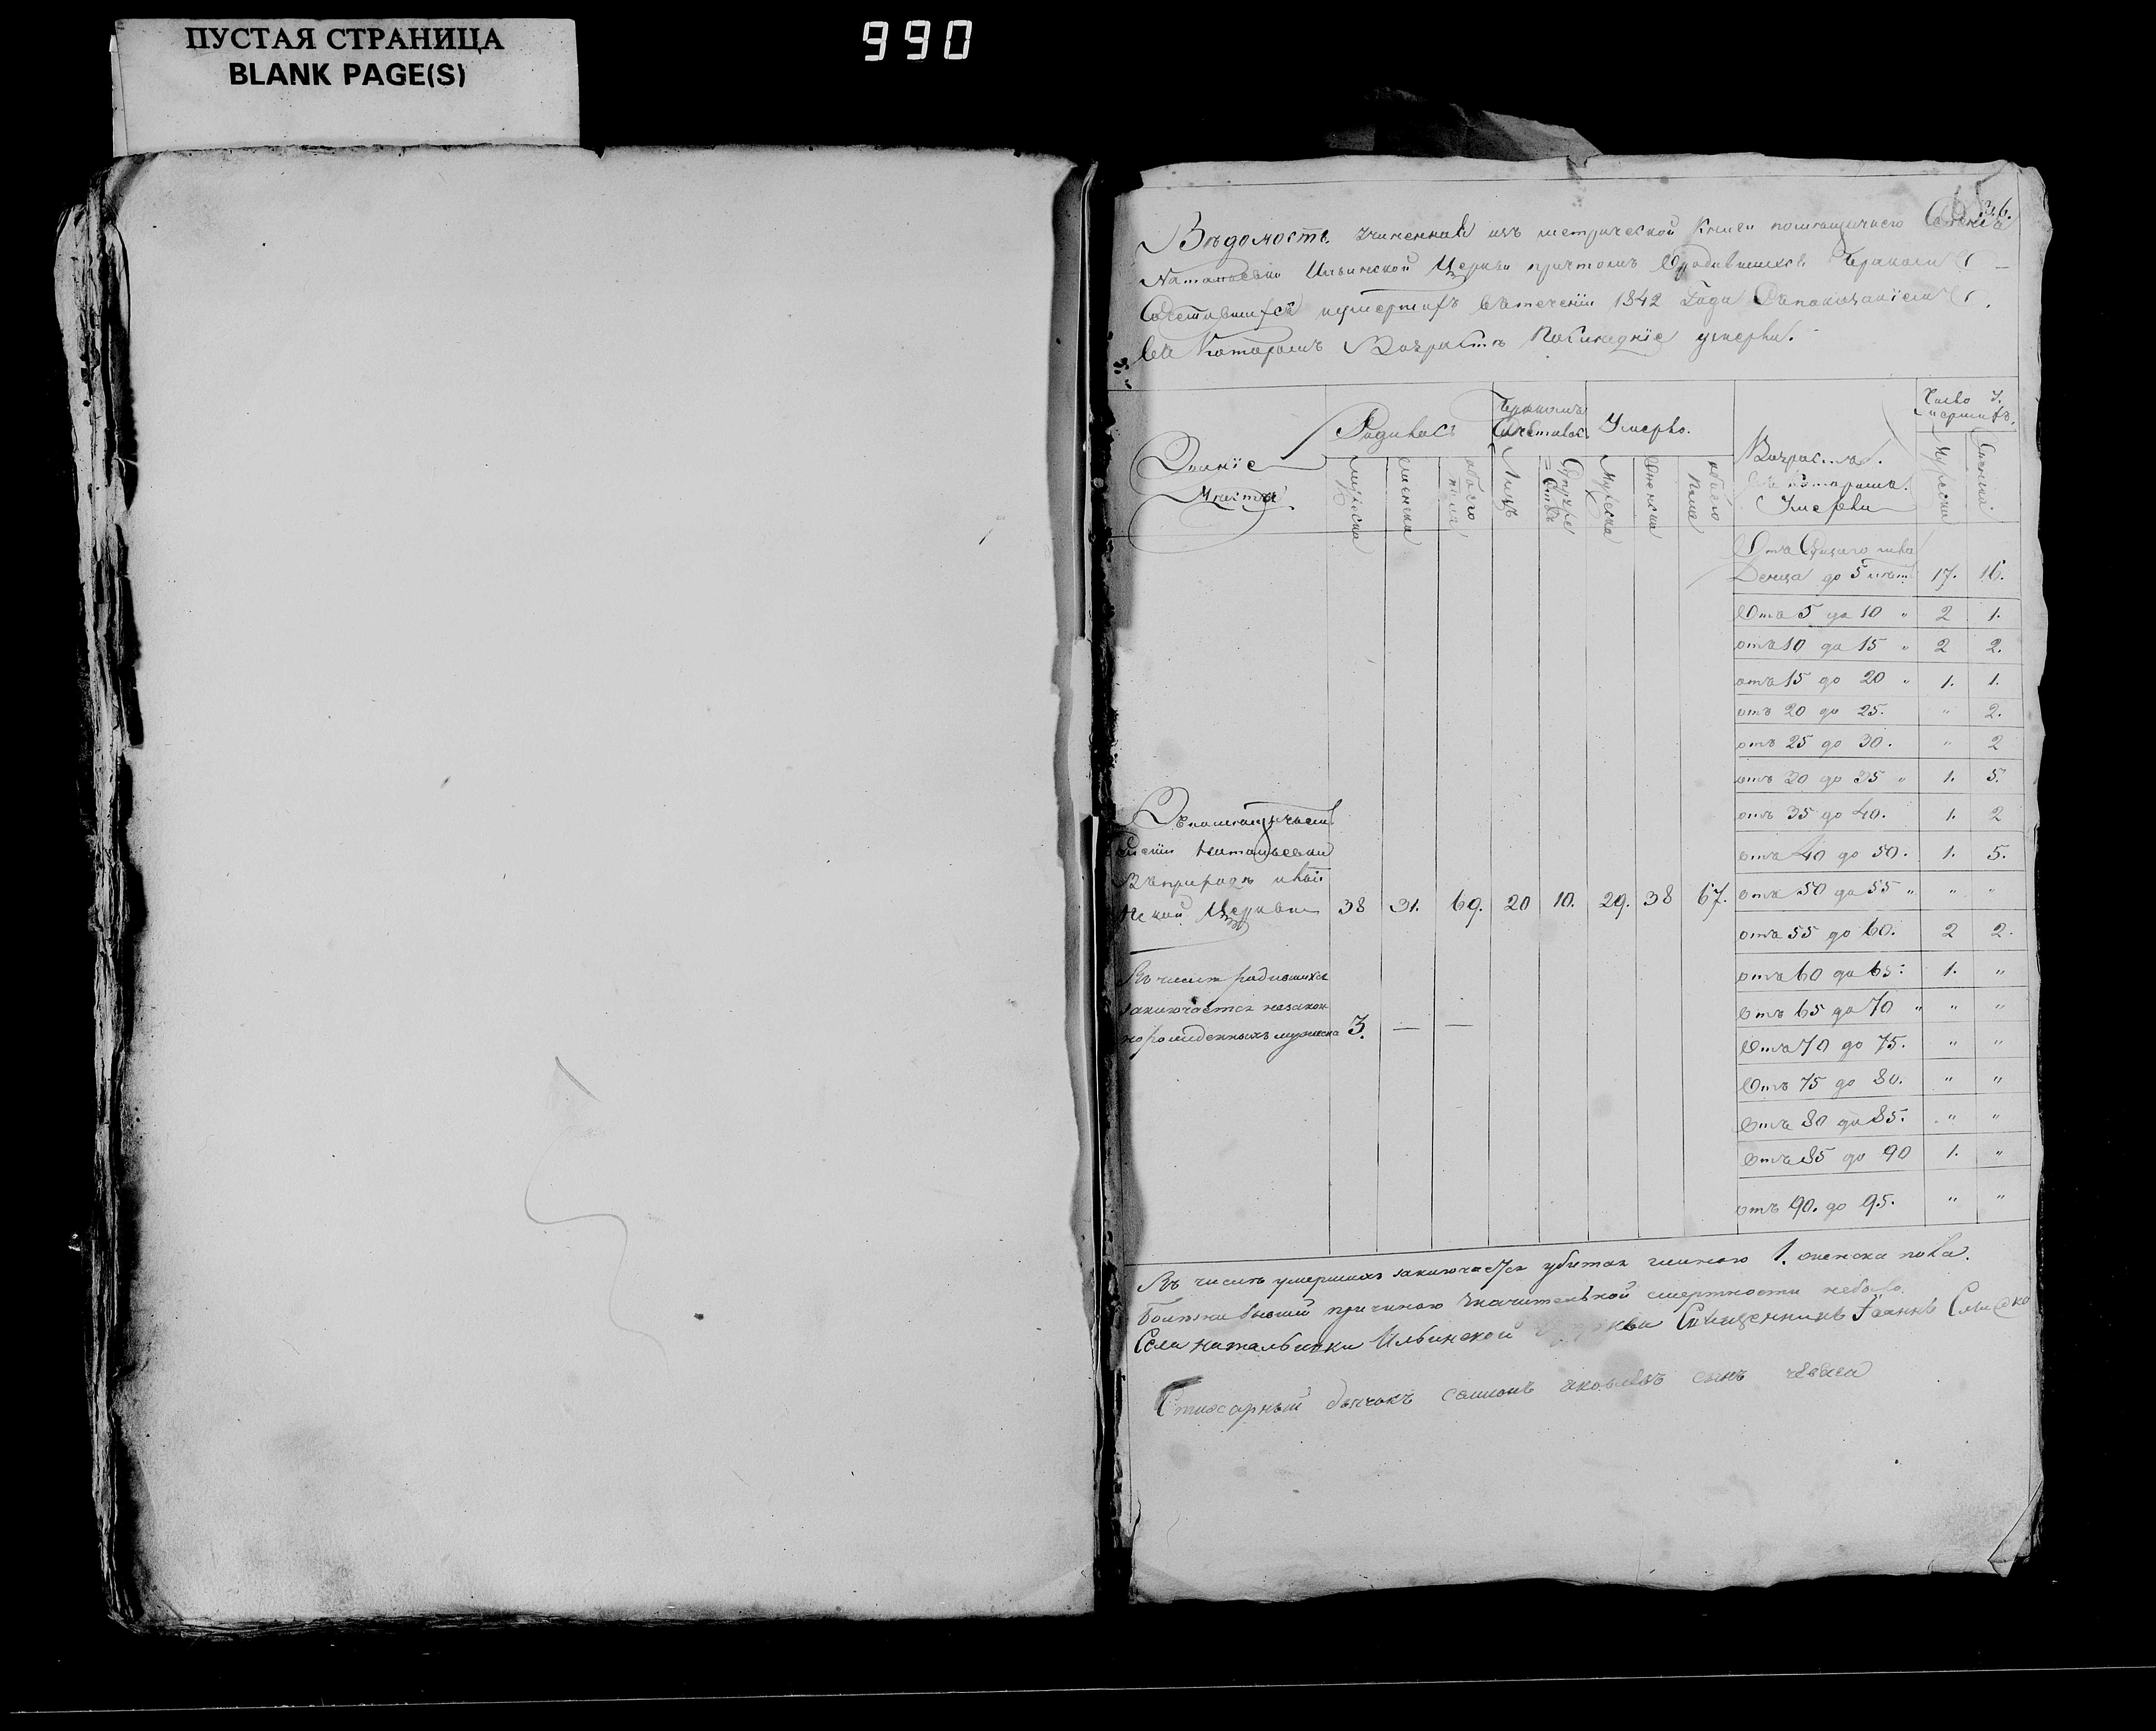 ПУСТАЯ СТРАНИЦА
BLANK PAGE(S)
990
36.
Вѣдомость учиненная изъ метрической книги помѣщичьего Селенія
Натальевки Ильинской Церкви причтомъ Ородившихся Бракомъ
Сочетавшихся иумершихъ вътеченіи 1842 Года Съпоказаніем
въ Которомъ Возрастѣ Послѣдніе умерли.
Званіе
Мѣста
Родилось
Бракомъ
Сочеталось
Умерло.
Возраста.
въ которомъ
Умерли
Число У
мершихъ.
мужеска
женска
обоего
пола
Лицъ
Супруже
ствъ
Мужеска
Женска
обоего
пола
Мужеска
Женска.
Отъ
Денца до 5 лѣтъ 17. 16.
Отъ 5 до 10 " 2 1.
отъ 10 до 15 " 2 2.
отъ 15 до 20 " 1. 1.
отъ 20 до 25. " 2.
отъ 25 до 30. " 2
отъ 30 до 35 " 1. 5.
отъ 35 до 40. 1. 2
отъ 40 до 50. 1. 5.
отъ 50 до 55 " " "
отъ 55 до 60. 2 2.
отъ 60 до 65. 1. "
Отъ 65 до 70 " " "
Отъ 70 до 75. " "
Отъ 75 до 80. " "
Отъ 80 до 85. " "
Отъ 85 до 90 1. "
отъ 90. до 95. " "
Въпомѣщичьем
Селеніи Натальевки
Въприходѣ Ильи
нской Церкви 38 31. 69. 20 10. 29. 38 67.
Въ числѣ родившихся
заключается незакон
норожденныхъ мужеска 3. — —
Въ числѣ умершихъ заключается убитая глиною 1. женска пола.
Болѣзни бывшей причиною значительной смертности небыло.
Села Натальевки Ильинской Церкви Священникъ Іоаннъ
Стихарный дьячокъ сынъ